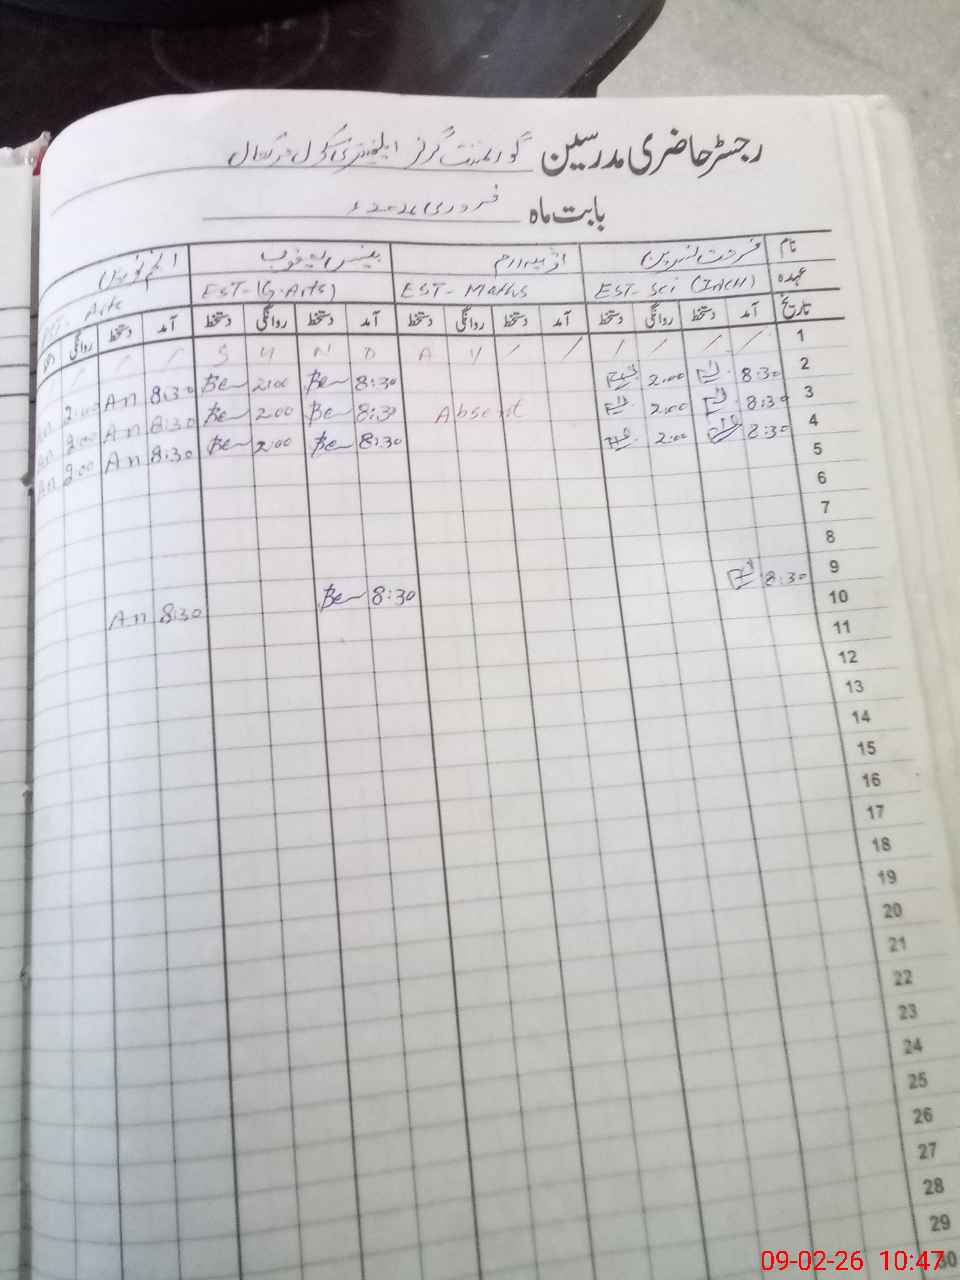 رجسٹر حاضری مدرسین گورنمنٹ گرلز ایلیمنٹری سکول
بابت ماہ فروری 2026ء
نام فرحت نسرین
عہدہ EST- Sci (Inch) EST- Maths EST-(G.Arts) Arts
تاریخ آمد دستخط روانگی دستخط آمد دستخط روانگی دستخط آمد دستخط روانگی دستخط آمد دستخط روانگی
1 / / / / / / Y A D N U S / / / /
2 8:30 2:00 8:30 Be 2:00 Be 8:30 An 2:00
3 8:30 2:00 Absent 8:30 Be 2:00 Be 8:30 An 2:00 An
4 8:30 2:00 8:30 Be 2:00 Be 8:30 An 2:00 An
5
6
7
8
9 8:30 8:30 Be 8:30 An
10
11
12
13
14
15
16
17
18
19
20
21
22
23
24
25
26
27
28
29
30
09-02-26 10:47